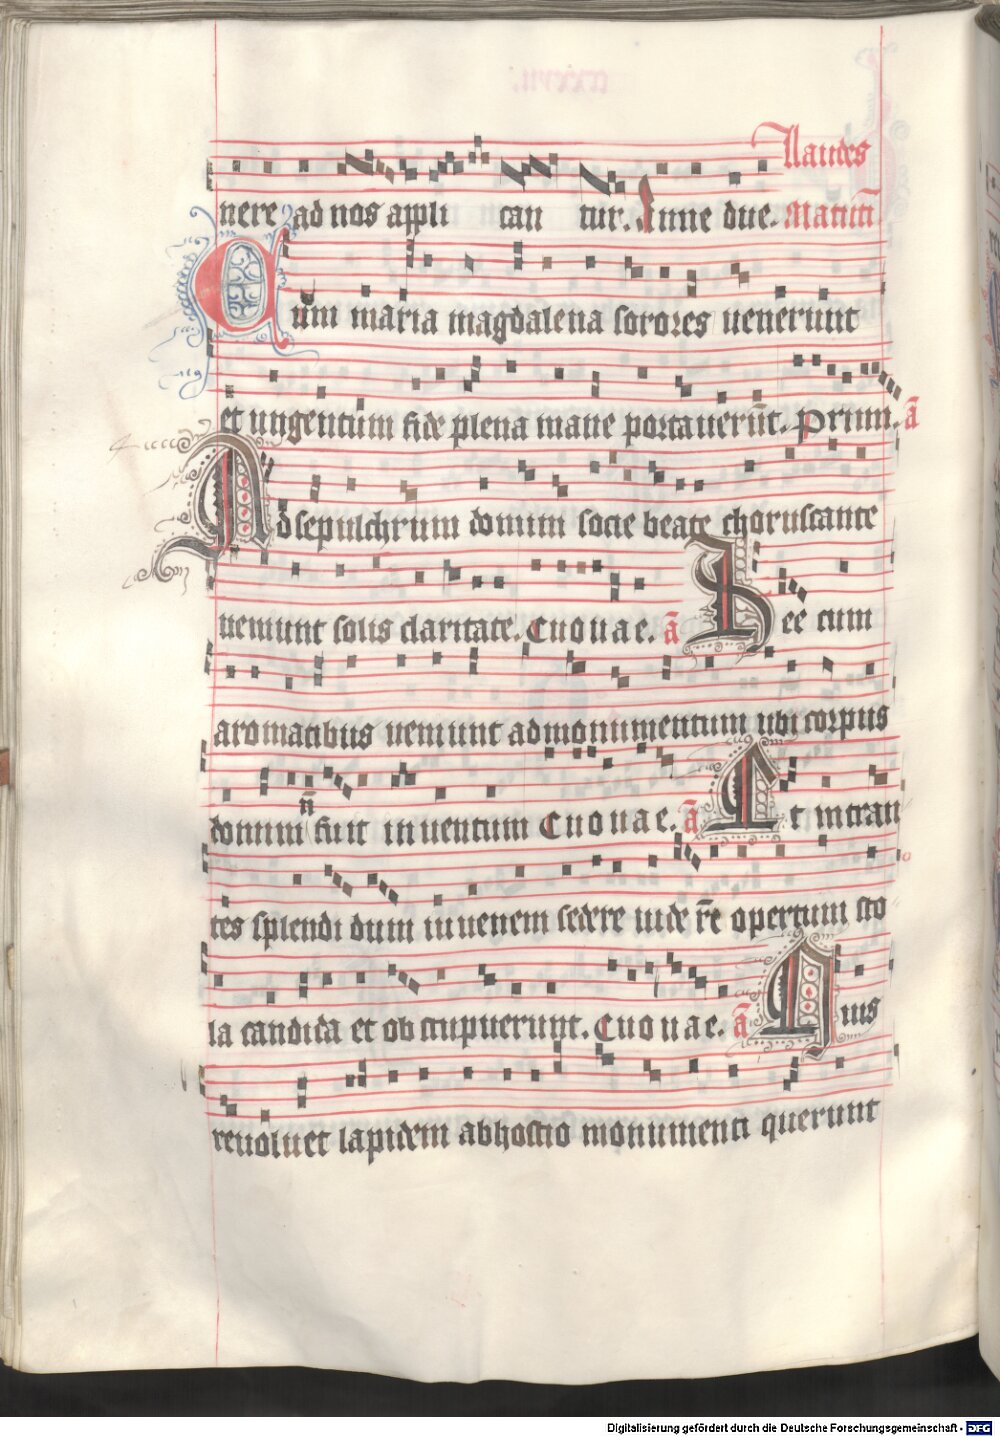 llaudes
nere ad nos appli can tur. Inne due. Matuti
Cum maria magdalena sorores uenerunt
et ungentum fide plena mane portauerūt. Prim. ā
Ad sepulchrum domini socie beate choruscante
ueniunt solis claritate. Euouae. ā Hee cum
aromatibus ueniunt ad monumentum ubi corpus
domini n̄ fuit inuentum Euouae. ā Et intran
tes splendidum iuuenem sedere uide r̄t opertum sto
la candida et obstupuerunt. Euouae. ā Quis
reuoluet lapidem abhostio monumenti querunt
Digitalisierung gefördert durch die Deutsche Forschungsgemeinschaft - DFG